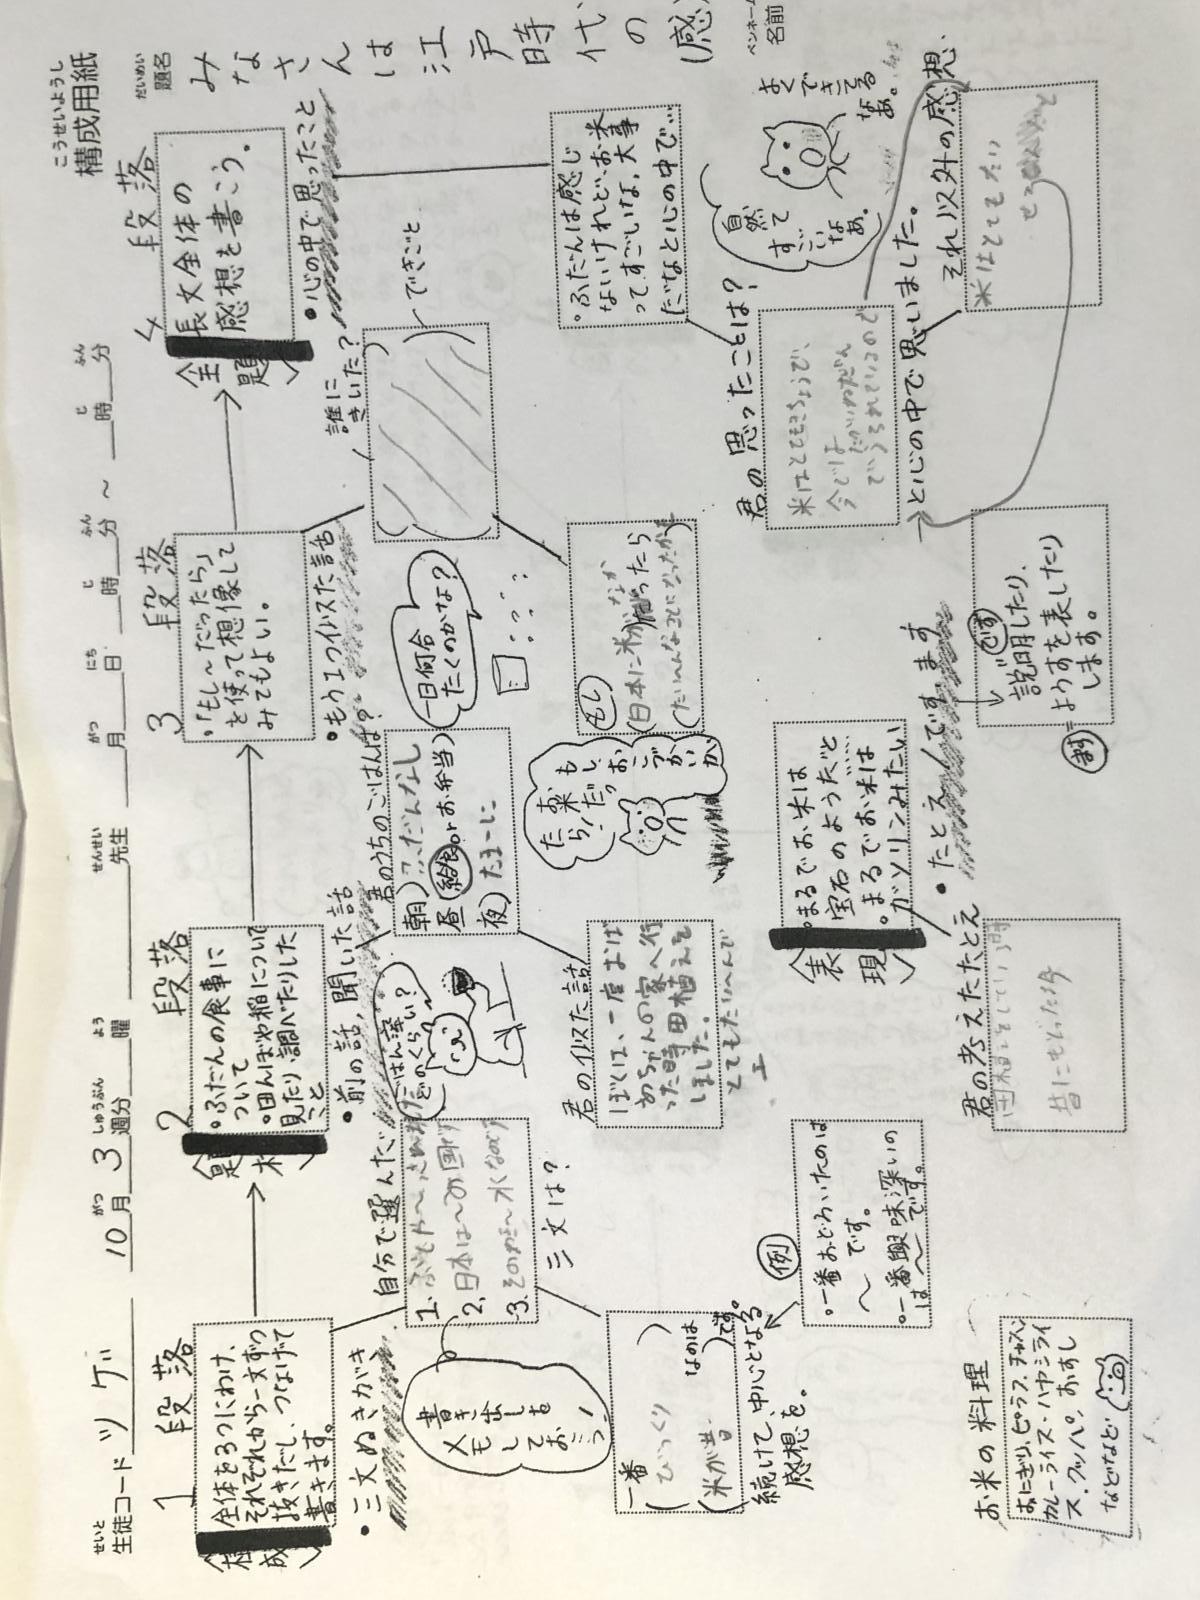 こうせいようし
構成用紙
せいと
生徒コード ツゲ 10月3週分 曜 先生 月 日 時 分 ~ 時 分
がつ しゅうぶん よう せんせい がつ にち じ ふん じ ふん
だいめい
題名
みなさんは江戸時代の
ペンネーム
名前
1 段落
全体を3つにわけ、
それぞれから一文ずつ
抜きだし、つなげて
書きます。
・三文ぬきがき
自分で選んだ
三文は?
1.
2, 日本は~
3.
書き出しを
メモ
して
おこう!
一番
(びっくり)
なのは
(米が昔)です。
続けて、中心となる
感想を。
例
・一番おどろいたのは
~です。
・一番興味深いの
は~です。
お米の料理
おにぎり、ピラフ、チャーハン
カレーライス・ハヤシライ
ス、クッパ、おすし
などなど
2 段落
・ふだんの食事に
ついて
・田んぼや稲について
見たり調べたりした
こと
・前の話、聞いた話
ごはん茶わん
どのくらい?
君のうちのごはんは?
朝)ふだんなし
昼(給食orお弁当)
夜)たまーに
一日何合
たくのかな?
君の似た話
ぼくは、一度おば
あちゃんの家へ行
った時田植えを
しました。
とてもたいへんで
君の考えたたとえ
昔にもどった時
〈表現〉
・まるでお米は
宝石のようだ
・まるでお米は
ガソリンみたい
・たとえ
3 段落
・「もし~だったら」
と使って想像して
みてもよい。
・もう1つ似た話
誰に
きいた?
できごと
もし
(日本に米がなかったら
もし、お
米だったら!
おこづかいが、
説明したり、
ようすを表したり
します。
4 段落
〈全題〉
長文全体の
感想を書こう。
・心の中で思ったこと
・ふだんは感じ
ないけれど、お米
ってすごいな、大事
だなと心の中で…
自然って
すごいなあ。
よくできてる
なあ。
君の思ったことは?
米はとてもきちょうで、
今では
でいうられているので
と心の中で思いました。
それ以外の感想、
米はとてもたい